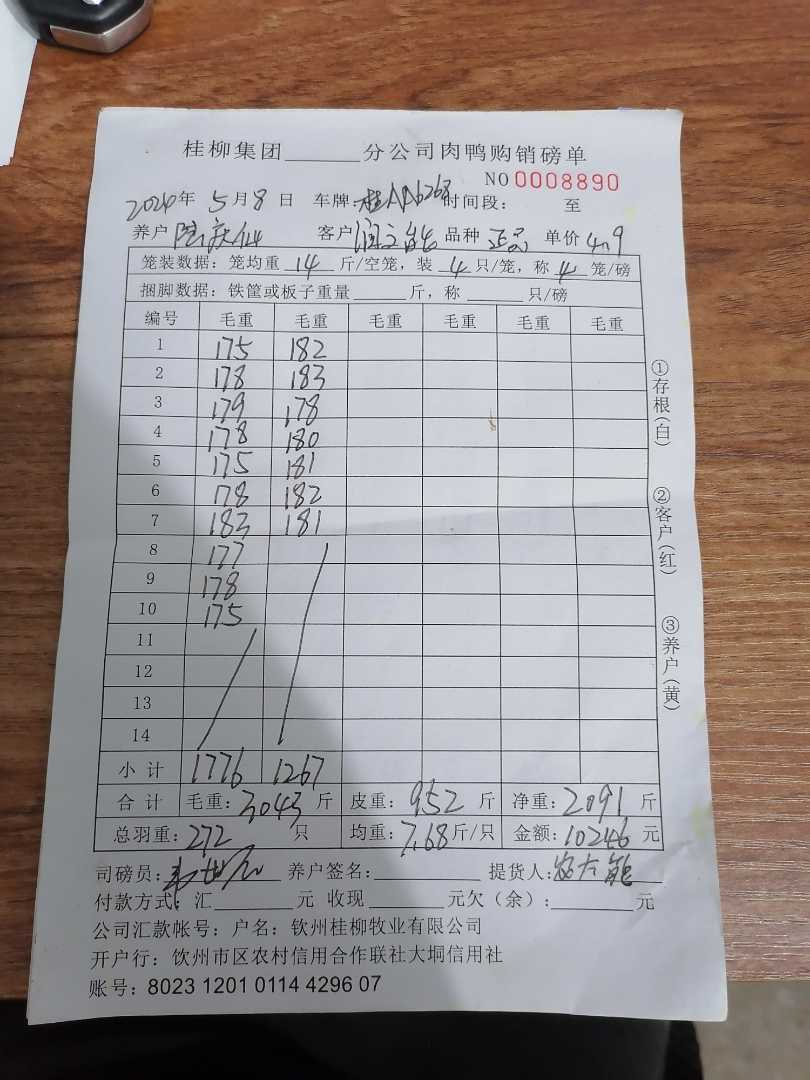 桂柳集团______分公司肉鸭购销磅单
NO 0008890
2024年 5月8日 车牌: 时间段: 至
养户 客户 品种 正品 单价 4.9
笼装数据：笼均重 14 斤/空笼，装 4 只/笼，称 4 笼/磅
捆脚数据：铁筐或板子重量______斤，称______只/磅
编号 毛重 毛重 毛重 毛重 毛重 毛重
1 175 182
2 178 183
3 179 178
4 178 180
5 175 181
6 178 182
7 183 181
8 177
9 178
10 175
11
12
13
14
小计 1776 1267
合计 毛重：3043斤 皮重：952斤 净重：2091斤
总羽重：272只 均重：7.68斤/只 金额：10246元
司磅员： 养户签名：______ 提货人：
付款方式：汇______元 收现______元欠（余）：______元
公司汇款帐号：户名：钦州桂柳牧业有限公司
开户行：钦州市区农村信用合作联社大垌信用社
账号：8023 1201 0114 4296 07
①存根(白)
②客户(红)
③养户(黄)